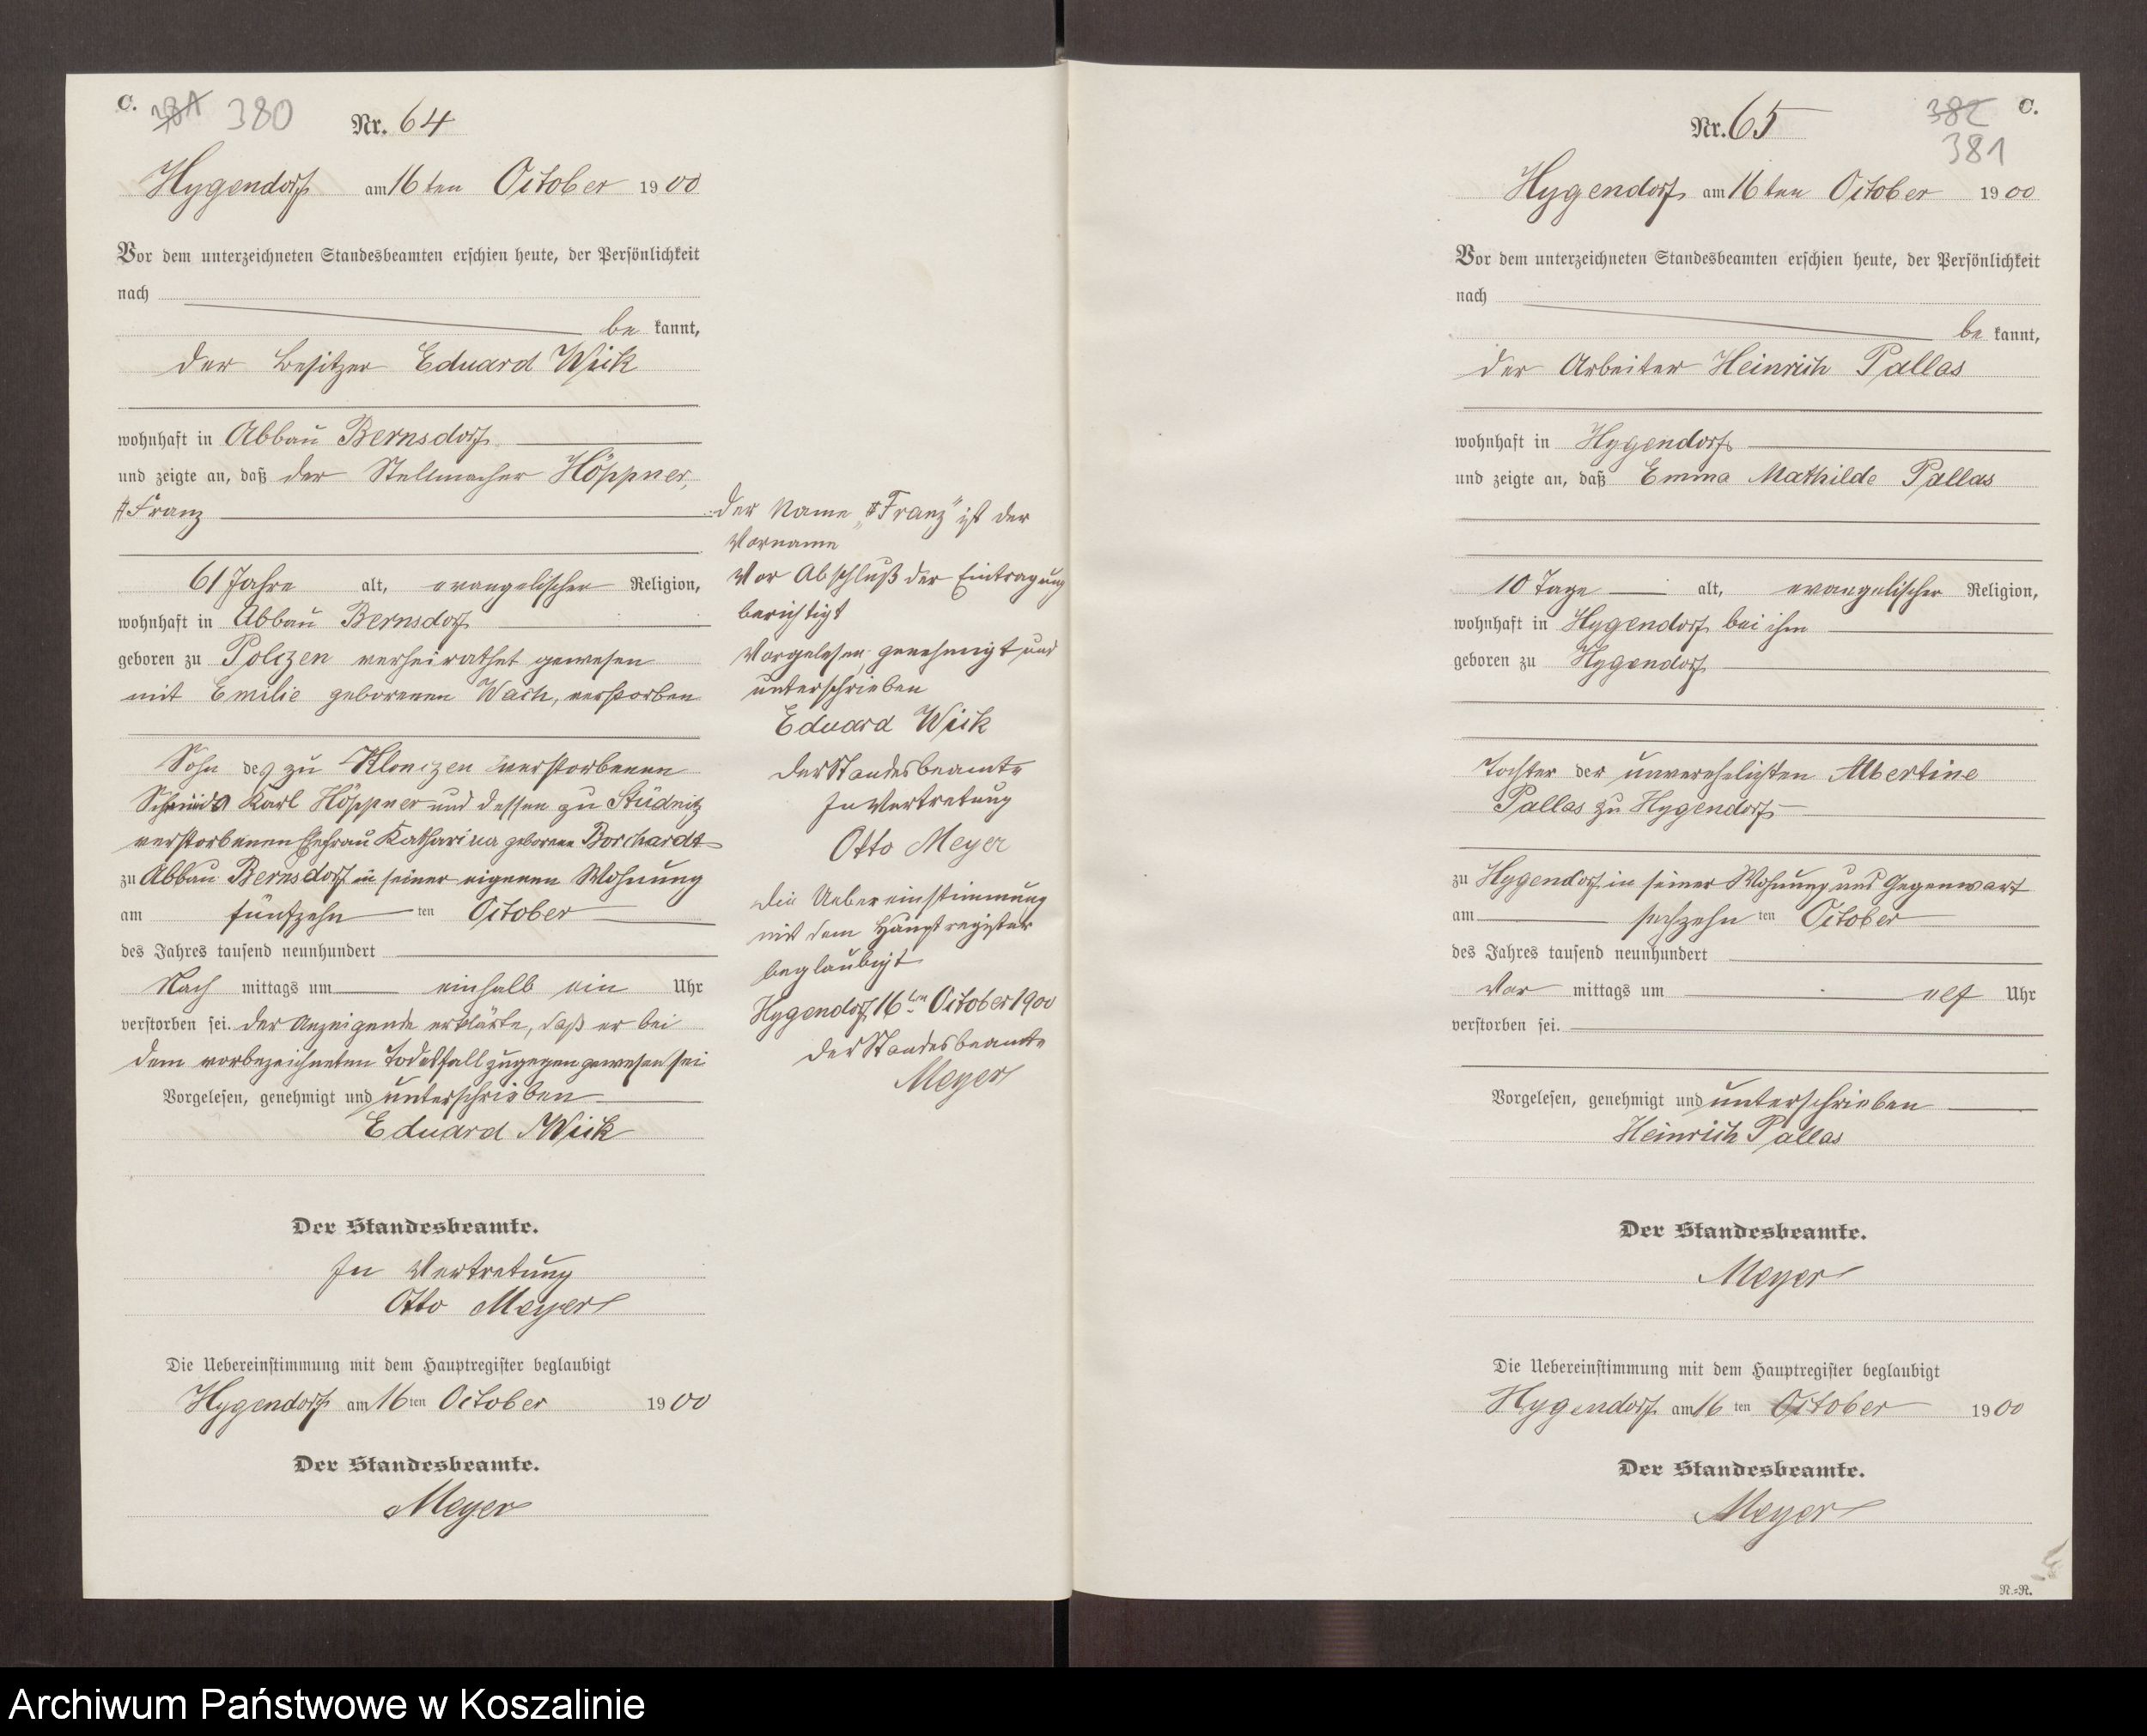 C. 380 Nr. 64
Hygendorf am 16ten October 1900
Vor dem unterzeichneten Standesbeamten erschien heute, der Persönlichkeit
nach
be kannt,
der Besitzer Eduard Wick
wohnhaft in Abbau Bernsdorf
und zeigte an, daß der Stellmacher Höppner,
# Franz
61 Jahre alt, evangelischer Religion,
wohnhaft in Abbau Bernsdorf
geboren zu Polczen verheirathet gewesen
mit Emilie geborenen Wach, verstorben
Sohn des zu Klonczen verstorbenen
Schmieds Karl Höppner und dessen zu Stüdnitz
verstorbenen Ehefrau Katharina geborene Borchardt
zu Abbau Bernsdorf in seiner eigenen Wohnung
am fünfzehn ten October
des Jahres tausend neunhundert
Nach mittags um einhalb ein Uhr
verstorben sei. Der Anzeigende erklärte, daß er bei
dem vorbezeichneten Todesfall zugegen gewesen sei
Vorgelesen, genehmigt und unterschrieben
Eduard Wick
Der Standesbeamte.
In Vertretung
Otto Meyer
Die Uebereinstimmung mit dem Hauptregister beglaubigt
Hygendorf am 16ten October 1900
Der Standesbeamte.
Meyer
Der Name „# Franz" ist der
Vorname
Vor Abschluß der Eintragung
berichtigt
Vorgelesen, genehmigt und
unterschrieben
Eduard Wick
Der Standesbeamte
In Vertretung
Otto Meyer
Die Uebereinstimmung
mit dem Hauptregister
beglaubigt
Hygendorf, 16ten October 1900
Der Standesbeamte
Meyer
Nr. 65 382 C.
381
Hygendorf am 16ten October 1900
Vor dem unterzeichneten Standesbeamten erschien heute, der Persönlichkeit
nach
be kannt,
der Arbeiter Heinrich Pallas
wohnhaft in Hygendorf
und zeigte an, daß Emma Mathilde Pallas
10 Tage alt, evangelischer Religion,
wohnhaft in Hygendorf bei ihm
geboren zu Hygendorf
Tochter der unverehelichten Albertine
Pallas zu Hygendorf
zu Hygendorf in seiner Wohnung und Gegenwart
am sechzehn ten October
des Jahres tausend neunhundert
Vor mittags um elf Uhr
verstorben sei.
Vorgelesen, genehmigt und unterschrieben
Heinrich Pallas
Der Standesbeamte.
Meyer
Die Uebereinstimmung mit dem Hauptregister beglaubigt
Hygendorf am 16 ten October 1900
Der Standesbeamte.
Meyer
N.=R.
Archiwum Państwowe w Koszalinie